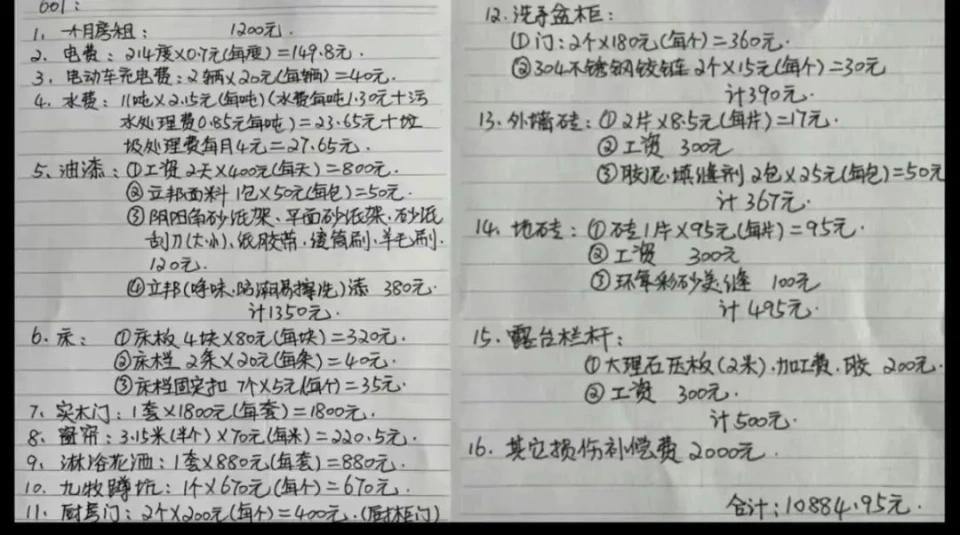 601:
1、一个月房租： 1200元.
2. 电费：214度×0.7元(每度)=149.8元.
3. 电动车充电费:2辆×20元(每辆)=40元.
4. 水费：11吨×2.15元(每吨)(水费每吨1.30元十污
水处理费0.85元每吨)=23.65元十垃
圾处理费每月4元=27.65元.
5、油漆：①工资 2天×400元(每天)=800元.
②立邦面料 1包×50元(每包)=50元.
③阴阳角砂纸架、平面砂纸架.砂纸
刮刀(大小).纸胶带.滚筒刷.羊毛刷.
120元.
④立邦(呼味.防潮易擦洗)漆 380元.
计1350元.
6. 床： ①床板 4块×80元(每块)=320元.
②床档 2条×20元(每条)=40元.
③床档固定扣 7个×5元(每个)=35元.
7. 实木门：1套×1800元(每套)=1800元.
8. 窗帘：3.15米(半个)×70元(每米)=220.5元.
9. 淋浴花洒：1套×880元(每套)=880元.
10. 九牧蹲坑：1个×670元(每个)=670元.
11. 厨房门：2个×200元(每个)=400元.(厨柜门)
12. 洗手盆柜：
①门：2个×180元(每个)=360元.
②304不锈钢铰链 2个×15元(每个)=30元
计390元.
13. 外墙砖：①2片×8.5元(每片)=17元.
②工资 300元
③胶泥.填缝剂 2包×25元(每包)=50元
计367元.
14. 地砖：①砖1片×95元(每片)=95元.
②工资 300元
③环氧彩砂美缝 100元
计495元.
15. 露台栏杆：
①大理石压板(2米).加工费.胶 200元.
②工资 300元.
计500元.
16. 其它损伤补偿费 2000元.
合计：10884.95元.